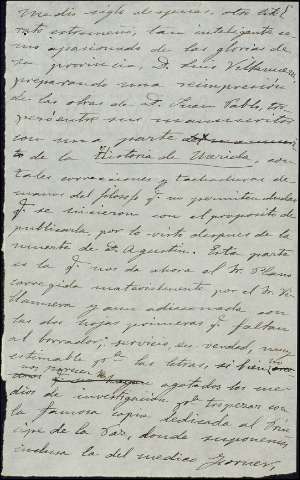 Medio siglo despues, otro lite
rato extremeño, tan inteligente co
mo apasionado de las glorias de
su provincia, D. Luis Villanueva,
preparando una reimpresión
de las obras de D. Juan Pablo, tro-
pezó entre sus manuscritos
con una parte
to de la Historia de Mérida, con
tales correcciones y tachaduras de
mano del filosofo q.e no permiten dudar
q.e se hicieron con el proposito de
publicarla, por lo visto despues de la
muerte de D. Agustin. Esta parte
es la q.e nos da ahora el Sr. Plano
corregida matarialmente por el Sr. Vi
llanueva y aun adicionada con
las dos hojas primeras q.e faltan
al borrador; servicio, en verdad, muy
estimable p.a las letras, si bien
nos parecen agotados los me-
dios de investigación p.a tropezar con
la famosa copia dedicada al Prin
cipe de la Paz, donde suponemos
inclusa la del medico Forner,